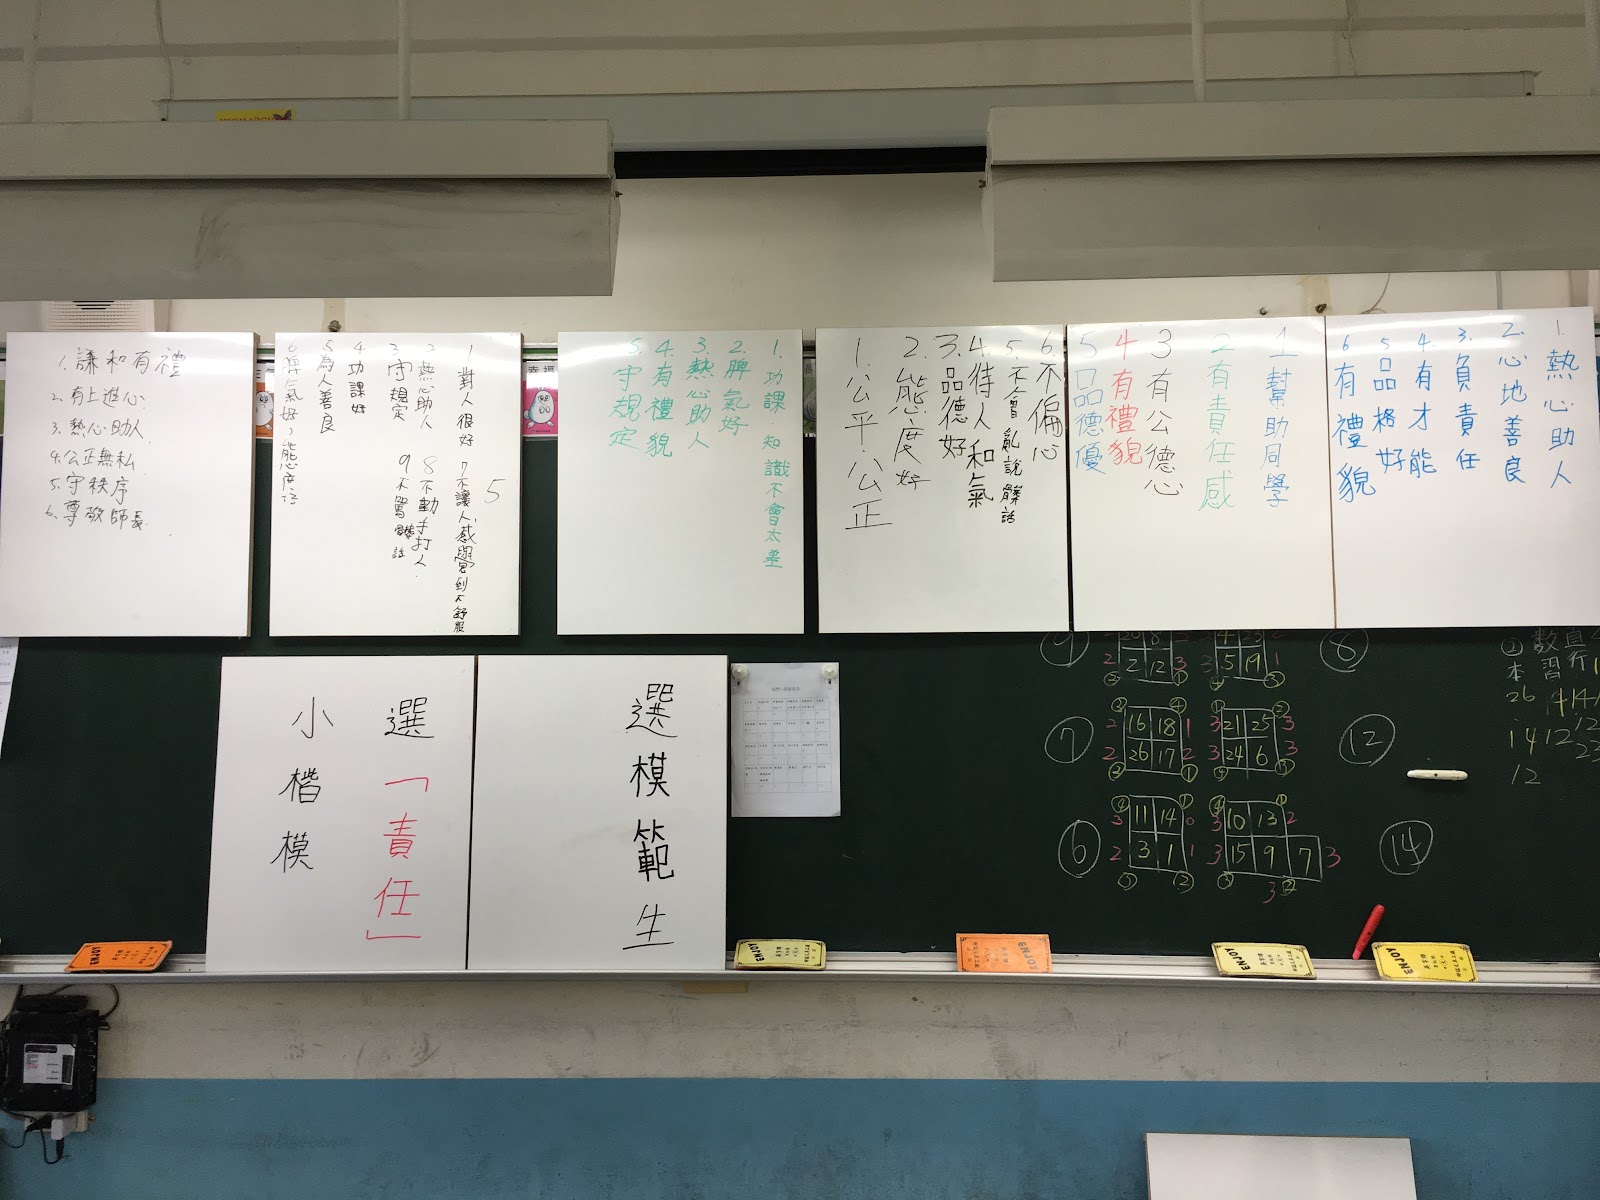 1. 熱心助人
2. 心地善良
3. 負責任
4. 有才能
5 品格好
6 有禮貌
1 幫助同學
2 有責任感
3 有公德心
4 有禮貌
5 品德優
1. 公平.公正
2. 態度好
3. 品德好
4. 待人和氣
5. 不會亂說髒話
6. 不偏心
1. 功課知識不會太差
2. 脾氣好
3. 熱心助人
4. 有禮貌
5. 守規定
5
1 對人很好
2 熱心助人
3 守規定
4 功課好
5 為人善良
6 脾氣好,態度好
7 不讓人感覺到不舒服
8 不動手打人.
9 不罵髒話
1. 謙和有禮
2. 有上進心
3. 熱心助人
4. 公正無私
5. 守秩序
6. 尊敬師長
選模範生
選「責任」
小楷模
9
20 8
2 12
4 23
5 19
8
7
16 18
26 17
21 25
24 6
12
6
11 14
3 1
10 13
15 9 7
14
ENJOY
ENJOY
ENJOY
ENJOY
ENJOY